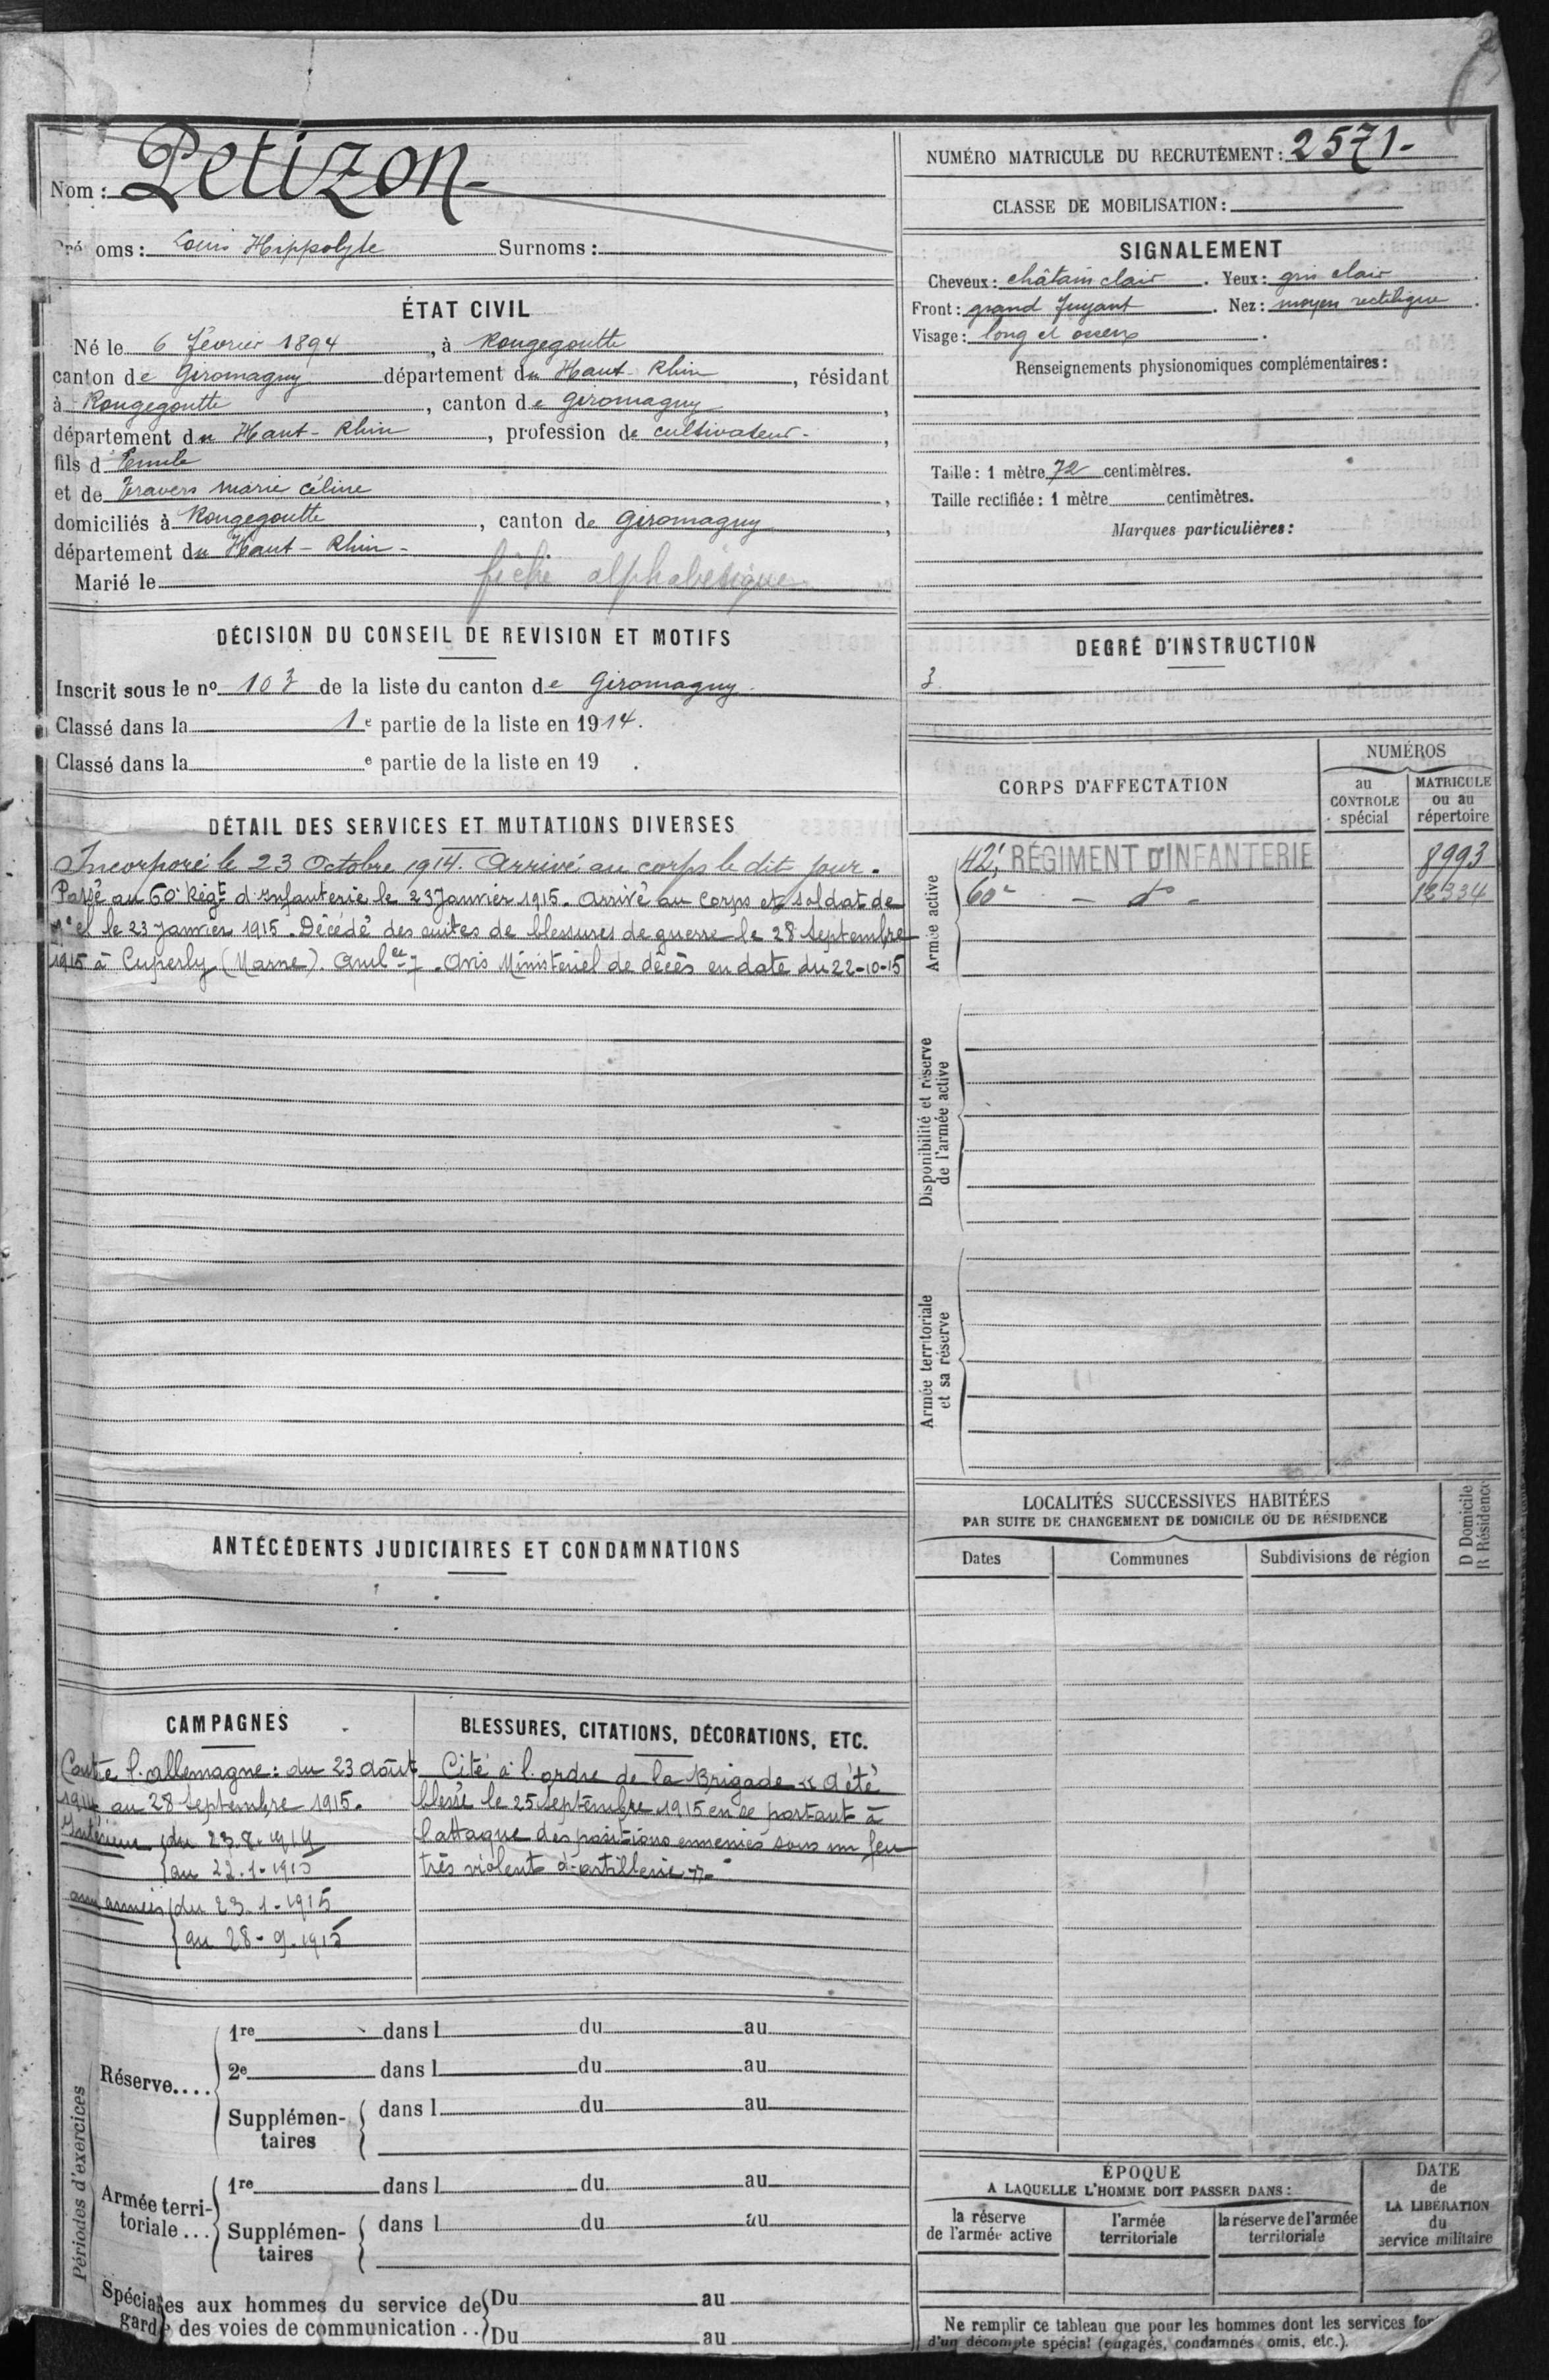 Nom : Petizon-
Prénoms : Louis Hippolyte Surnoms :
ÉTAT CIVIL
Né le 6 février 1894, à Rougegoutte
canton de Giromagny département du Haut-Rhin, résidant
à Rougegoutte, canton de Giromagny,
département du Haut-Rhin, profession de cultivateur-,
fils d' Emile
et de Travers marie céline,
domiciliés à Rougegoutte, canton de Giromagny,
département du Haut-Rhin-
Marié le fiche alphabétique
DÉCISION DU CONSEIL DE REVISION ET MOTIFS
Inscrit sous le nº 103 de la liste du canton de Giromagny.
Classé dans la 1e partie de la liste en 1914.
Classé dans la e partie de la liste en 19 .
DÉTAIL DES SERVICES ET MUTATIONS DIVERSES
Incorporé le 23 Octobre 1914. Arrivé au corps le dit jour.
Passé au 60e Régt d'Infanterie le 23 Janvier 1915. Arrivé au Corps et soldat de
2e cl le 23 Janvier 1915. Décédé des suites de blessures de guerre le 28 Septembre
1915 à Cuperly (Marne). Ambce 7. Avis Ministeriel de décès en date du 22-10-15
ANTÉCÉDENTS JUDICIAIRES ET CONDAMNATIONS
CAMPAGNES
Contre l'allemagne : du 23 août
1914 au 28 Septembre 1915.
Intérieur du 23.8.1914
au 22.1-1915
aux armées du 23-1-1915
au 28-9-1915
BLESSURES, CITATIONS, DÉCORATIONS, ETC.
Cité à l'ordre de la Brigade « A été
blessé le 25 Septembre 1915 en se portant à
l'attaque des positions ennemies sous un feu
très violent d'artillerie ».
Périodes d'exercices
Réserve....
1re dans l du au
2e dans l du au
Supplémentaires dans l du au
Armée territoriale...
1re dans l du au
Supplémentaires dans l du au
Spéciales aux hommes du service de Du au
garde des voies de communication .. Du au
NUMÉRO MATRICULE DU RECRUTEMENT : 2571-
CLASSE DE MOBILISATION :
SIGNALEMENT
Cheveux : châtain clair . Yeux : gris clair .
Front : grand fuyant . Nez : moyen rectiligne .
Visage : long et osseux .
Renseignements physionomiques complémentaires :
Taille : 1 mètre 72 centimètres.
Taille rectifiée : 1 mètre centimètres.
Marques particulières :
DEGRÉ D'INSTRUCTION
3
CORPS D'AFFECTATION
NUMÉROS
au CONTROLE spécial
MATRICULE ou au répertoire
Armée active
42e RÉGIMENT D'INFANTERIE 8993
60e - do - 12334
Disponibilité et réserve de l'armée active
Armée territoriale et sa réserve
LOCALITÉS SUCCESSIVES HABITÉES
PAR SUITE DE CHANGEMENT DE DOMICILE OU DE RÉSIDENCE
D Domicile
R Résidence
Dates Communes Subdivisions de région
ÉPOQUE
A LAQUELLE L'HOMME DOIT PASSER DANS :
la réserve de l'armée active
l'armée territoriale
la réserve de l'armée territoriale
DATE de LA LIBÉRATION du service militaire
Ne remplir ce tableau que pour les hommes dont les services
d'un décompte spécial (engagés, condamnés omis, etc.).